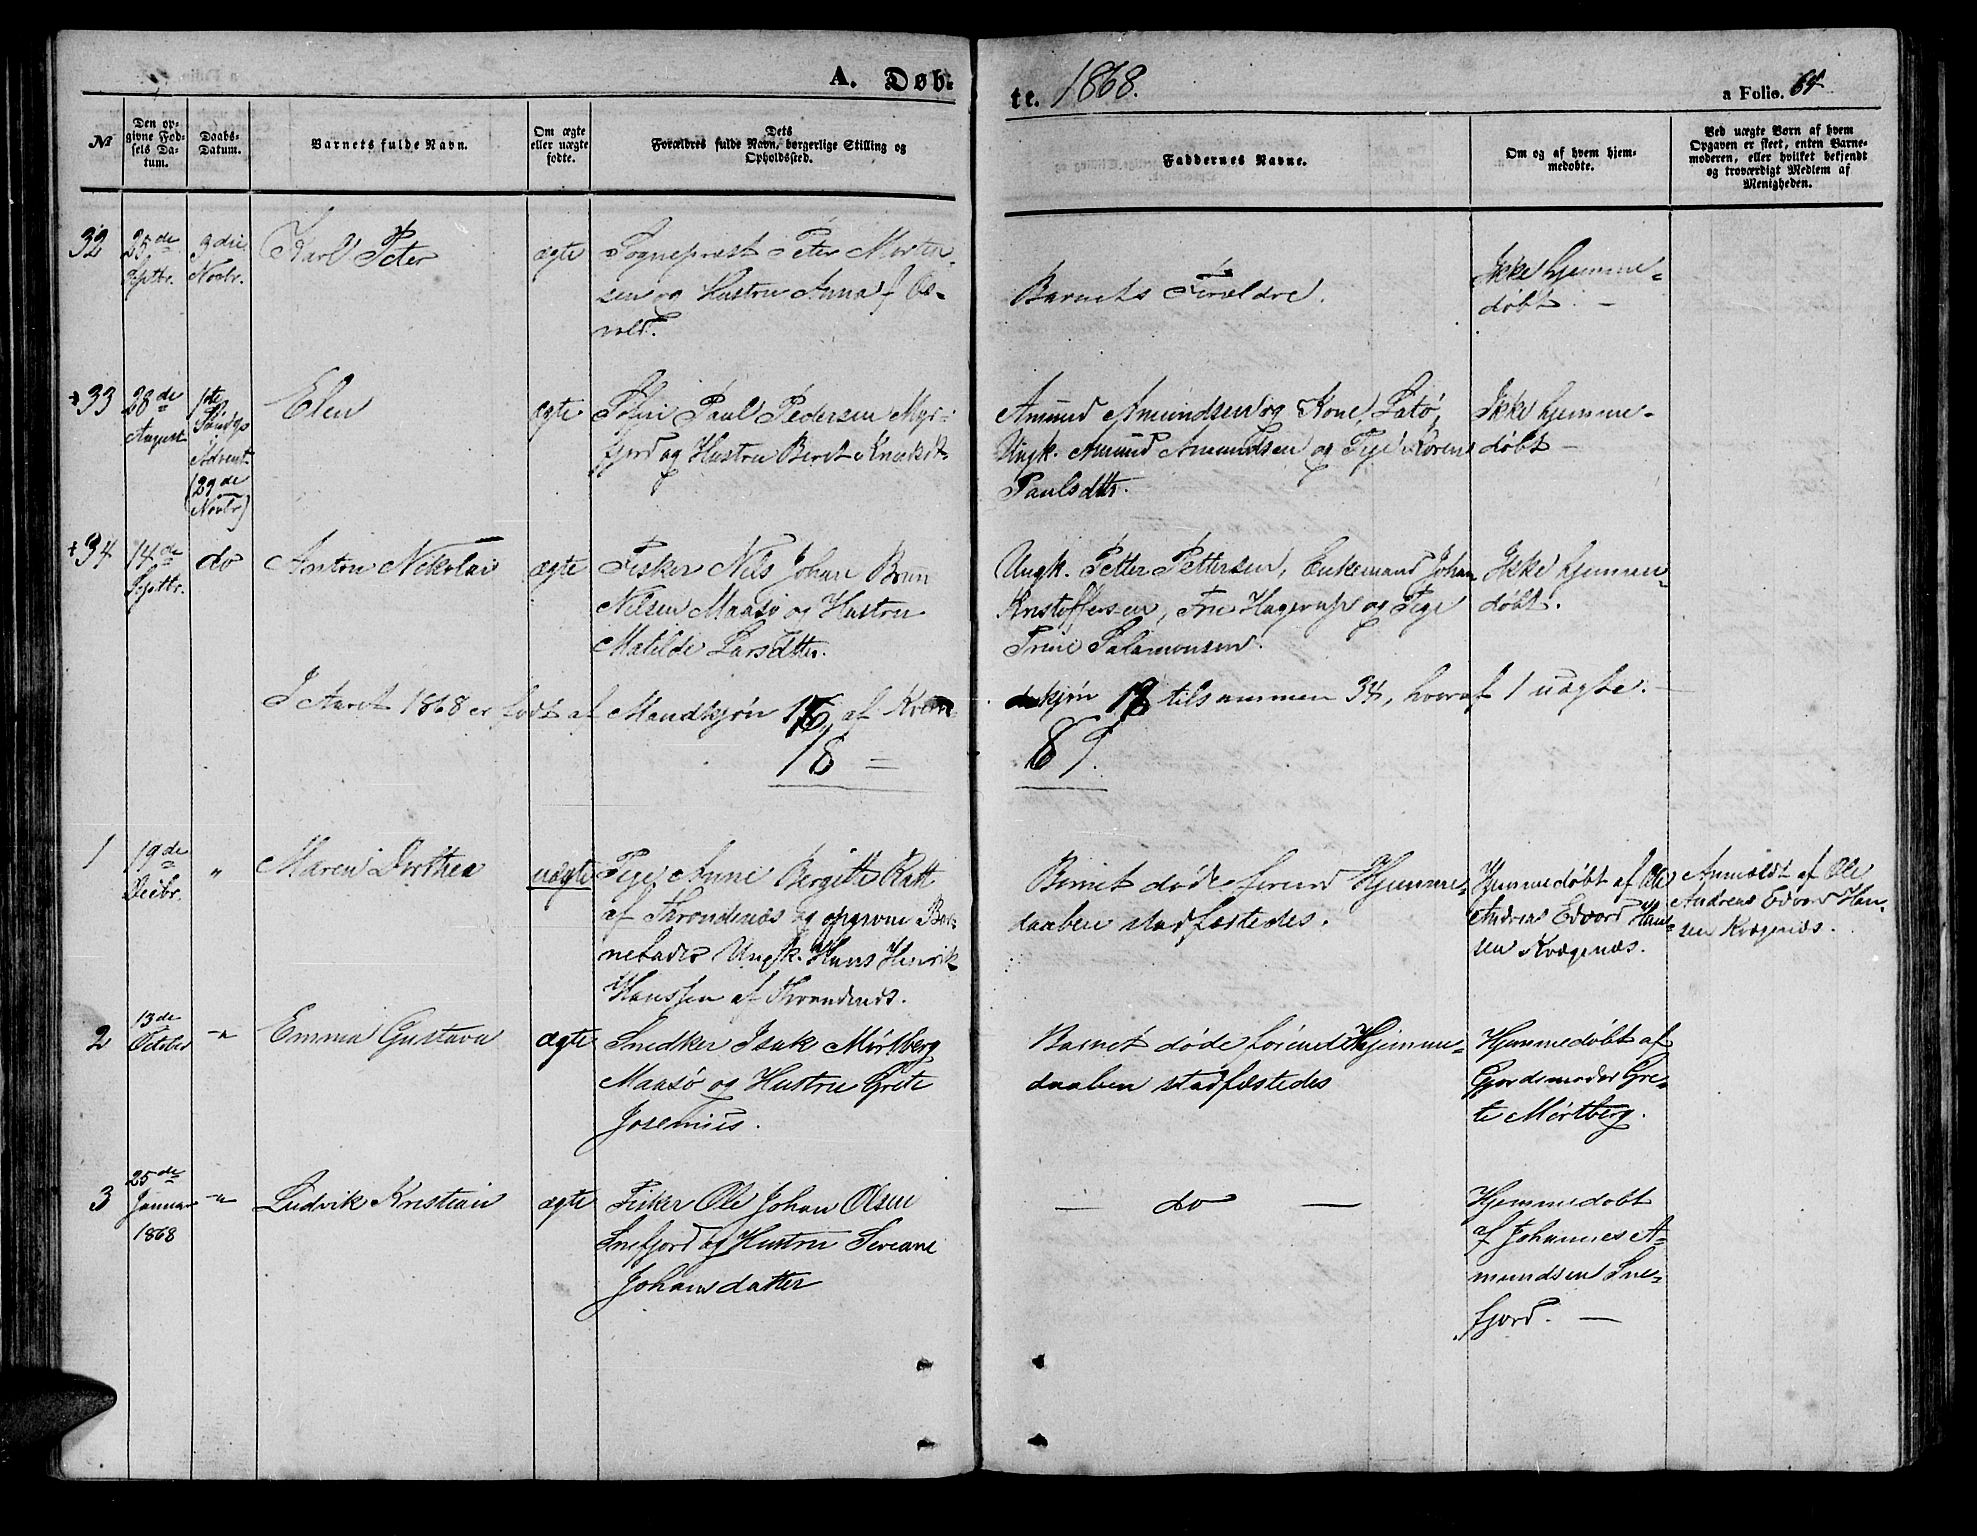 A. Døb-
te. 1868.
a Folio. 64.
№
Den op-
givne Fød-
sels Da-
tum.
Daabs-
Datum.
Barnets fulde Navn.
Om ægte
eller uægte
fødte.
Dets
Forældres fulde Navn, borgerlige Stilling og
Opholdssted.
Faddernes Navne.
Om og af hvem hjem-
medøbte.
Ved uægte Børn af hvem
Opgaven er skeet, enten Barne-
moderen, eller hvilket bekjendt
og troværdigt Medlem af
Menigheden.
32
25de
Septbr.
3die
Novbr.
Karl Peter
ægte
Sogneprest Peter Morten-
sen og Hustru Anna f. Os-
vold.
Barnets Forældre.
Ikke hjemme-
døbt. —
+33
28de
August
1ste
Søndg
Advent
(29de
Novbr)
Elen
ægte
Paul Pedersen Myr-
fjord og Hustru Berit
Amund Amundsen og Kone, Latø,
Ungk. Amund Amundsen og Pige Karen
Paulsdttr.
Ikke hjemme-
døbt —
+34
14de
Septbr.
do
Anton Nikolai
ægte
Fisker Nils Johan Brun
Nilsen Maasø og Hustru
Matilde Larsdtter.
Ungk. Petter Pettersen, Enkemand Johan
Kristoffersen, Fru Hagerup og Pige
Trine Salamonsen.
Ikke hjemme-
døbt.
I Aaret 1868 er født af Mandkjøn 16, af Kvin-
dekjøn 18 tilsammen 34, hvoraf 1 uægte. —
18 =
1
19de
Decbr.
"
Maren Dorthea
uægte
Pige Anne Bergitte Ratt
af Throndenæs og opgivne Bar-
nefader Ungk. Hans Henrik
Hanssen af Throndenæs.
Barnet døde førend Hjemme-
daaben stadfæstedes.
Hjemmedøbt af Ole
Andreas Edvard Han-
sen Kvægenæs.
Anmeldt af Ole
Andreas Edvard Han-
sen Kvægenæs.
2
13de
October
-"-
Emma Gustava
ægte
Snedker Isak Mørtberg
Maasø og Hustru Grete
Barnet døde førend Hjemme-
daaben stadfæstedes
Hjemmedøbt af
Gjordemoder Gre-
te Mørtberg.
3
25de
Januar
1868
-"-
Ludvik Kristian
ægte
Fisker Ole Johan Olsen
Snefjord og Hustru Sereane
Johansdatter
— do —
Hjemmedøbt
af Johannes A-
mundsen Sne-
fjord. —